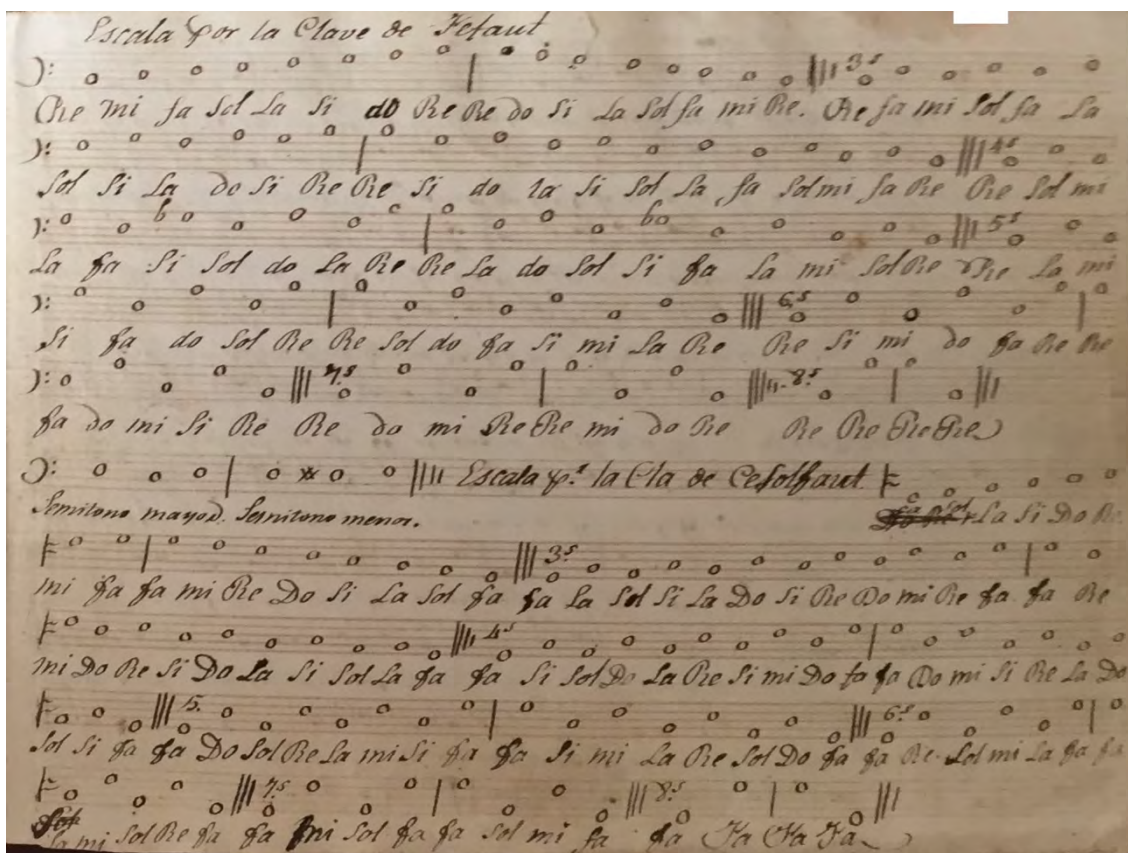 Escala por la Clave de Fefaut.
3.s
Re mi fa Sol La Si do Re Re do Si La Sol fa mi Re. Re fa mi Sol fa La
4.s
Sol Si La do Si Re Re Si do la Si Sol La fa Sol mi fa Re Re Sol mi
b b 5.s
La fa Si Sol do La Re Re La do Sol Si fa La mi Sol Re Re La mi
6.s
Si fa do Sol Re Re Sol do fa Si mi La Re Re Si mi do fa Re Re
7.s 8.s
fa do mi Si Re Re do mi Re Re mi do Re Re Re Re Re
Escala pr. la Cla de Cesolfaut.
Semitono mayor. Semitono menor. La Si Do Re
3.s
mi fa fa mi Re Do Si La Sol fa fa La Sol Si La Do Si Re Do mi Re fa fa Re
4.s
mi Do Re Si Do La Si Sol La fa fa Si Sol Do La Re Si mi Do fa fa Do mi Si Re La Do
5. 6.s
Sol Si fa fa Do Sol Re La mi Si fa fa Si mi La Re Sol Do fa fa Re Sol mi La fa fa
7.s 8.s
La mi Sol Re fa fa mi Sol fa fa Sol mi fa fa Fa Fa Fa